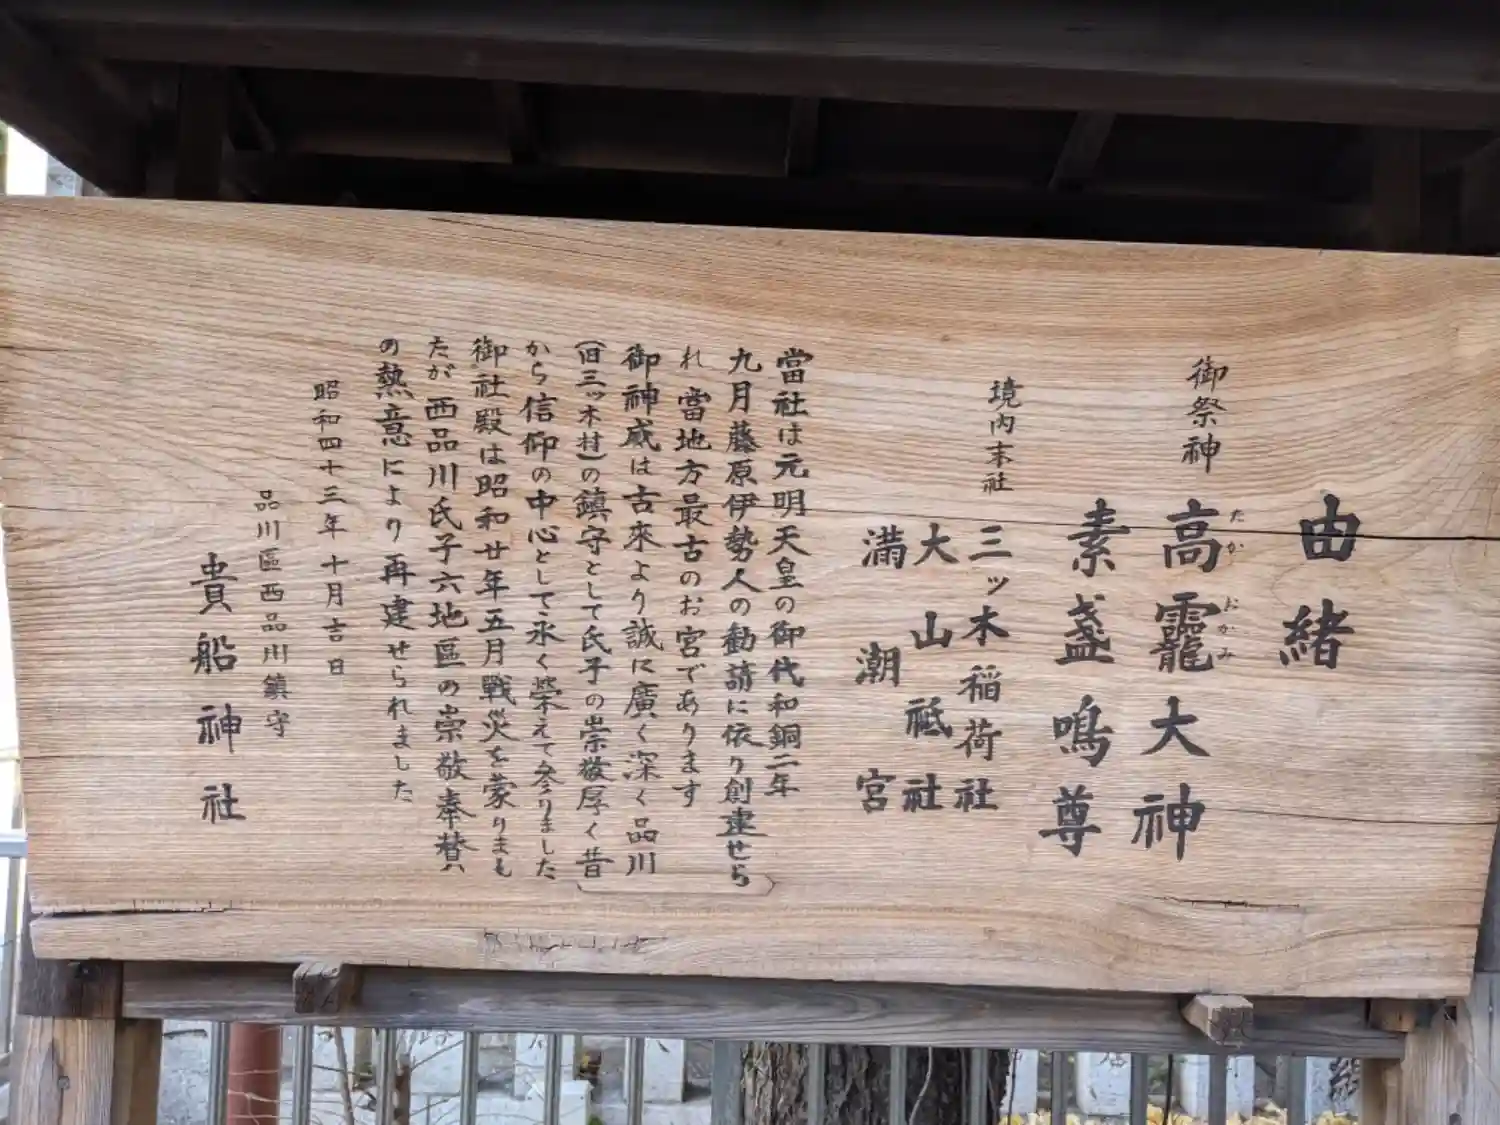 由緒
御祭神
高龗大神
たかおかみ
素盞嗚尊
境内末社
三ッ木稲荷社
大山祗社
満潮宮
當社は元明天皇の御代和銅二年
九月藤原伊勢人の勧請に依り創建せら
れ當地方最古のお宮であります
御神威は古來より誠に廣く深く品川
(旧三ッ木村)の鎮守として氏子の崇敬厚く昔
から信仰の中心として永く榮えて参りました
御社殿は昭和廿年五月戰災を蒙りまし
たが西品川氏子六地區の崇敬奉賛
の熱意により再建せられました
昭和四十三年十月吉日
品川區西品川鎮守
貴船神社